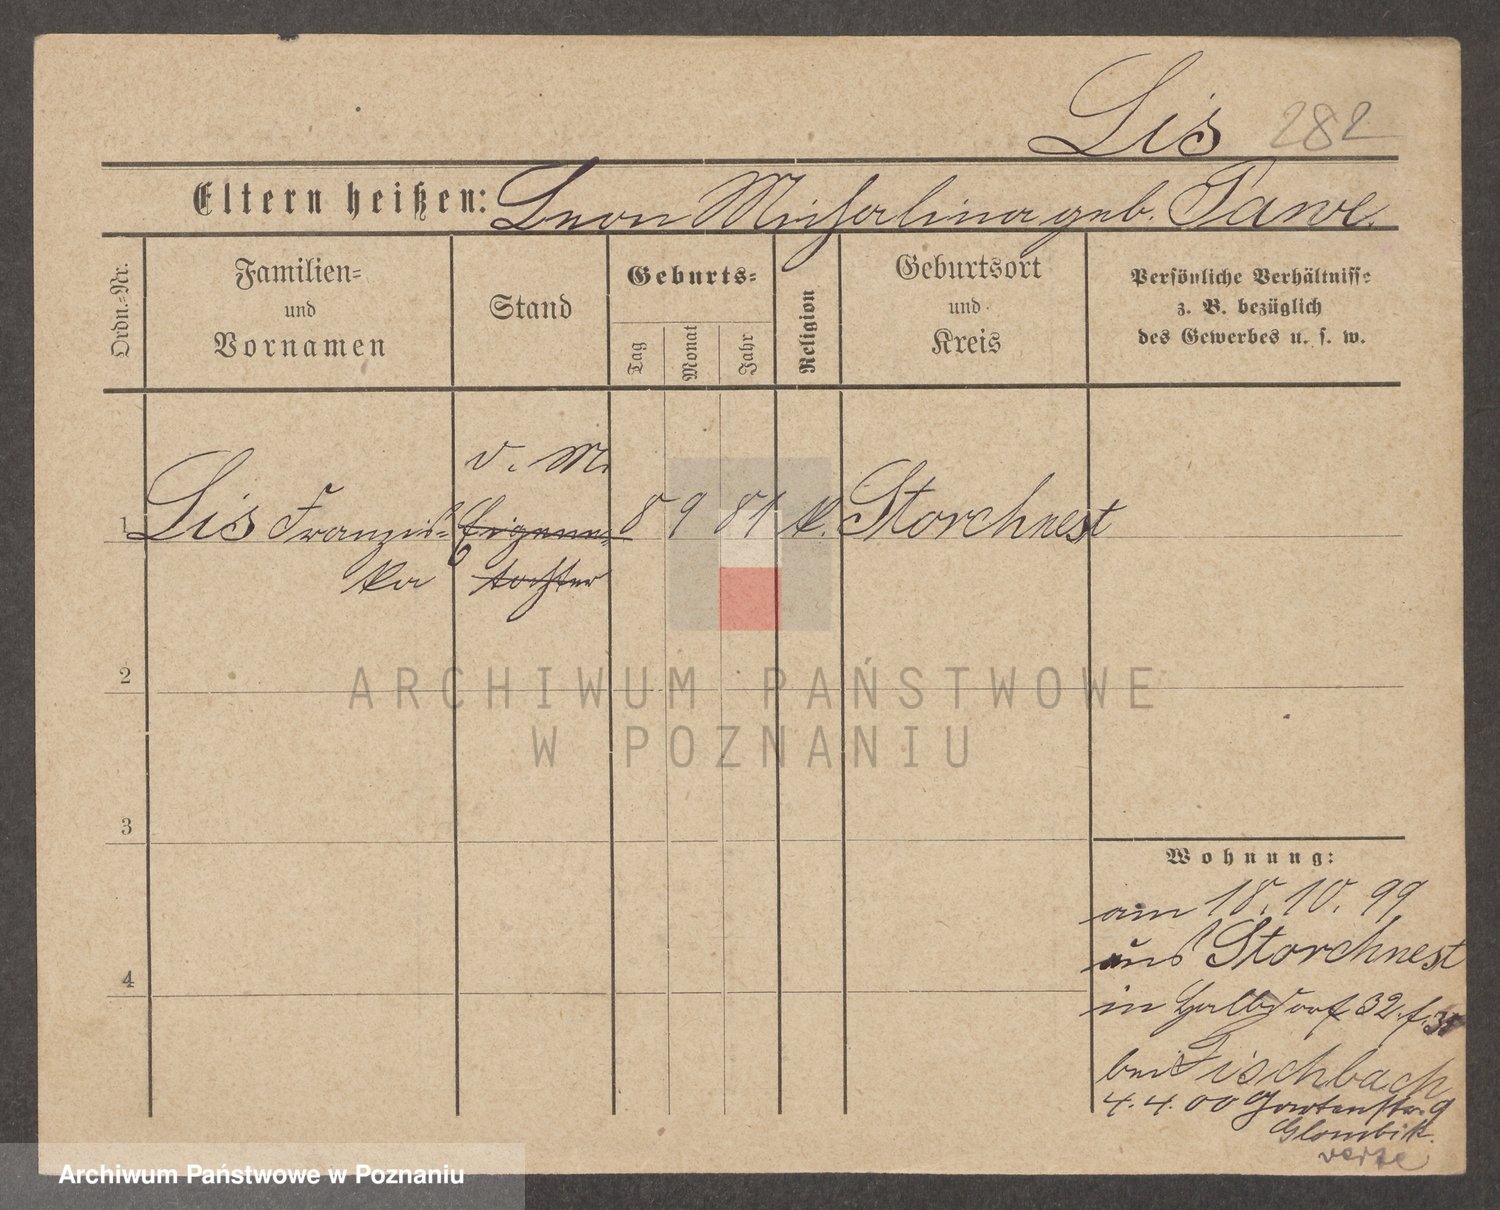 Lis 282
Eltern heißen: Leon Michalina geb. Pawe.
Ordn.=Nr.
Familien=
und
Vornamen
Stand
Geburts=
Tag
Monat
Jahr
Religion
Geburtsort
und
Kreis
Persönliche Verhältnisse
z. B. bezüglich
des Gewerbes u. s. w.
d. M.
1 Lis Franzis= Eigenn= 8 9 81 k. Storchnest
ka tochter
2
3
4
Wohnung:
am 18. 10. 99
aus Storchnest
in Halbdorf 32. f.
bei Fischbach
4. 4. 00 Gartenstr. 9
Glombik.
verte
ARCHIWUM PAŃSTWOWE
W POZNANIU
Archiwum Państwowe w Poznaniu